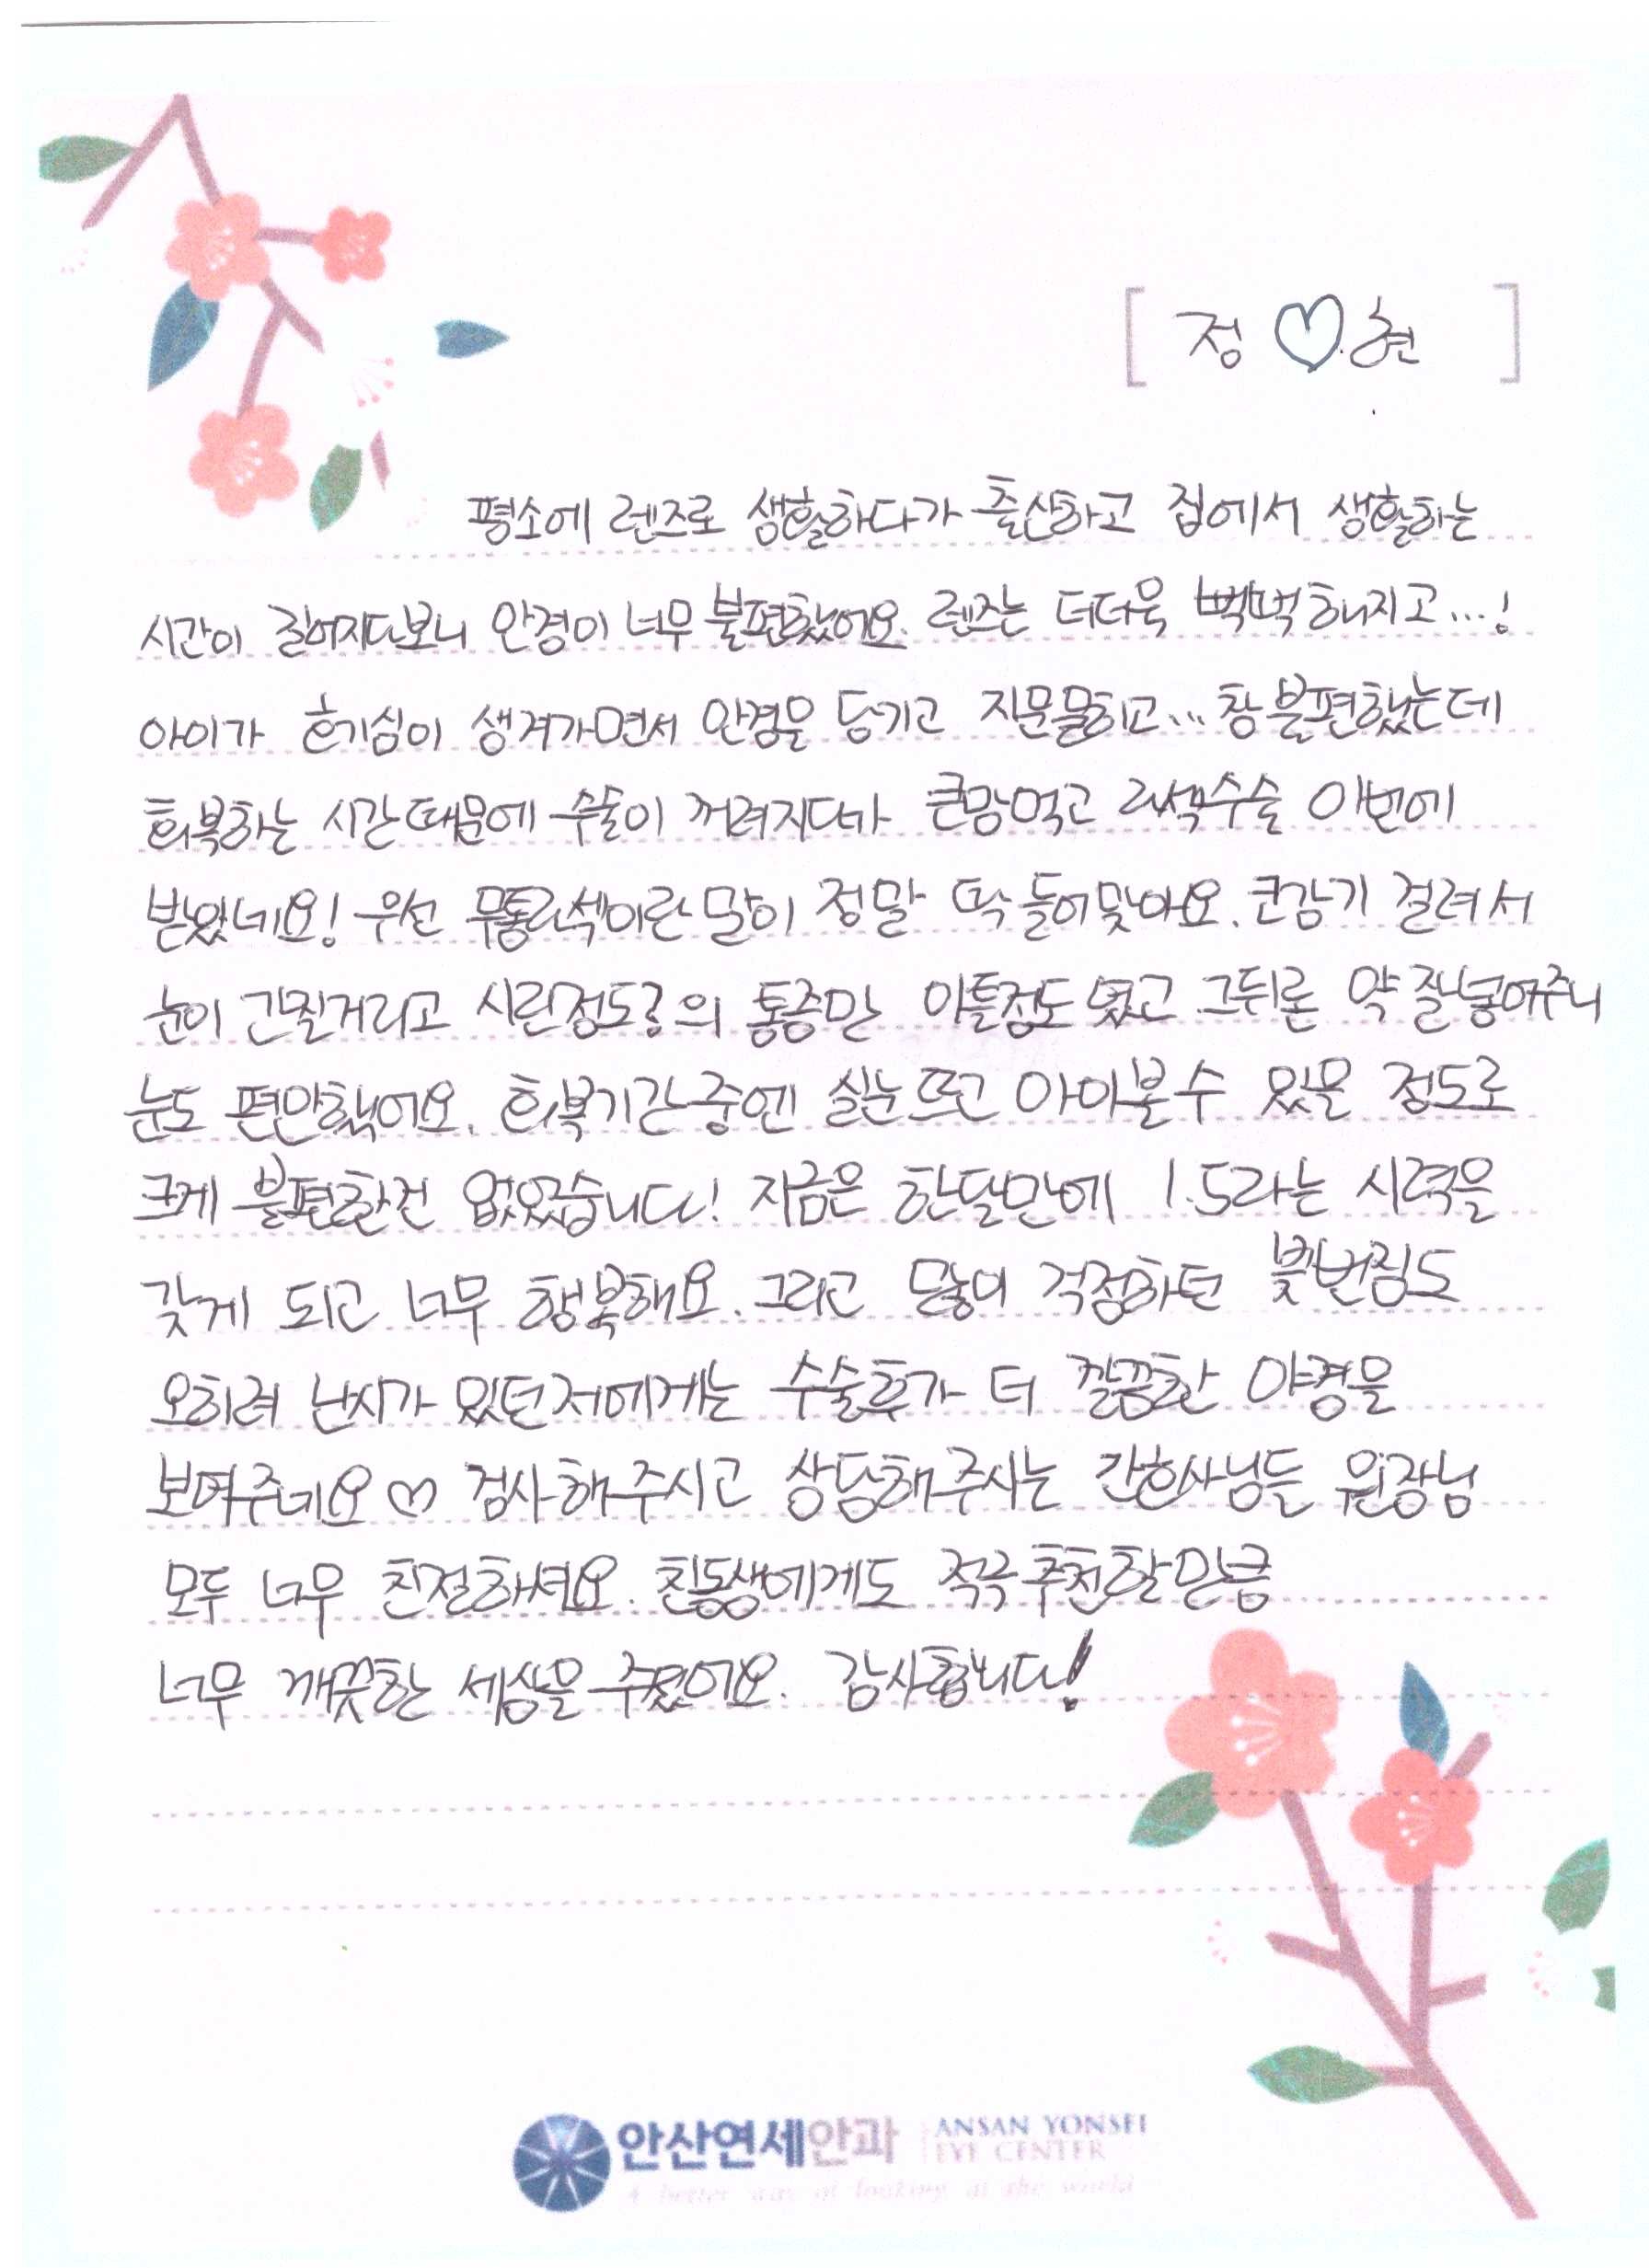 [ 정♡현 ]
평소에 렌즈로 생활하다가 출산하고 집에서 생활하는
시간이 길어지다보니 안경이 너무 불편했어요. 렌즈는 더더욱 뻑뻑해지고...!
아이가 호기심이 생겨가면서 안경을 당기고 지문묻히고... 참 불편했는데
회복하는 시간때문에 수술이 꺼려지다가 큰맘먹고 라섹수술 이번에
받았네요! 우선 무통라섹이란 말이 정말 딱 들어맞아요. 코감기 걸려서
눈이 간질거리고 시린정도?의 통증만 이틀정도 였고 그뒤론 약 잘넣어주니
눈도 편안했어요. 회복기간중엔 실눈뜨고 아이볼수 있을 정도로
크게 불편한건 없었습니다! 지금은 한달만에 1.5라는 시력을
갖게 되고 너무 행복해요. 그리고 많이 걱정하던 빛번짐도
오히려 난시가 있던저에게는 수술후가 더 깔끔한 야경을
보여주네요♡ 검사해주시고 상담해주시는 간호사님들 원장님
모두 너무 친절하셔요. 친동생에게도 적극추천할만큼
너무 깨끗한 세상을 주셨어요. 감사합니다!
안산연세안과 ANSAN YONSEI
EYE CENTER
A better way of looking at the world